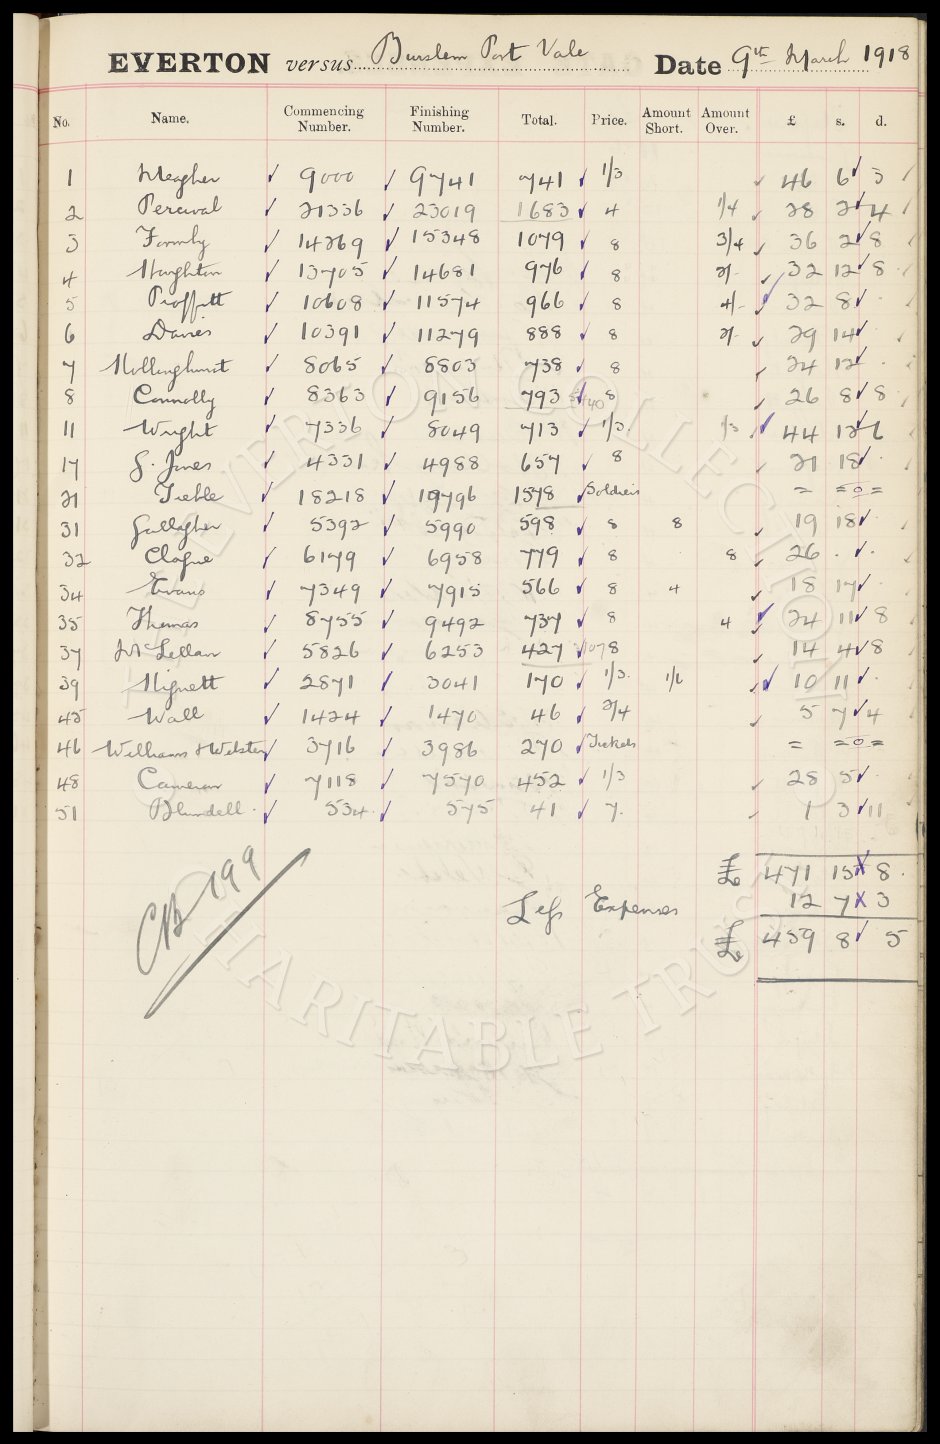 EVERTON versus Burslem Port Vale Date 9th March 1918
No. Name. Commencing Number. Finishing Number. Total. Price. Amount Short. Amount Over. £ s. d.
1 Meagher 9000 9741 741 1/3 46 6 3
2 Percival 21336 23019 1683 4 1/4 28 2 4
3 Formby 14269 15348 1079 8 3/4 36 2 8
4 Houghton 13705 14681 976 8 2/- 32 12 8
5 Proffitt 10608 11574 966 8 4/- 32 8 .
6 Davies 10391 11279 888 8 2/- 29 14 .
7 Hollinghurst 8065 8803 738 8 24 12 .
8 Connolly 8363 9156 793 8 26 8 8
11 Wright 7336 8049 713 1/3 1/3 44 12 6
17 G. Jones 4331 4988 657 8 21 18 .
21 Treble 18218 19796 1578 Soldiers = = 0 =
31 Gallagher 5392 5990 598 8 8 19 18 .
32 Clague 6179 6958 779 8 8 26 . .
34 Evans 7349 7915 566 8 4 18 17 .
35 Thomas 8755 9492 737 8 4 24 11 8
37 McLellan 5826 6253 427 8 14 4 8
39 Hignett 2871 3041 170 1/3 1/6 10 11 .
45 Wall 1424 1470 46 2/4 5 7 4
46 Williams & Webster 3716 3986 270 Tickets = = 0 =
48 Cameron 7118 7570 452 1/3 28 5 .
51 Blundell 534 575 41 7 1 3 11
£ 471 15 8
Less Expenses 12 7 3
£ 459 8 5
CB 199
EVERTON COLLECTION
CHARITABLE TRUST